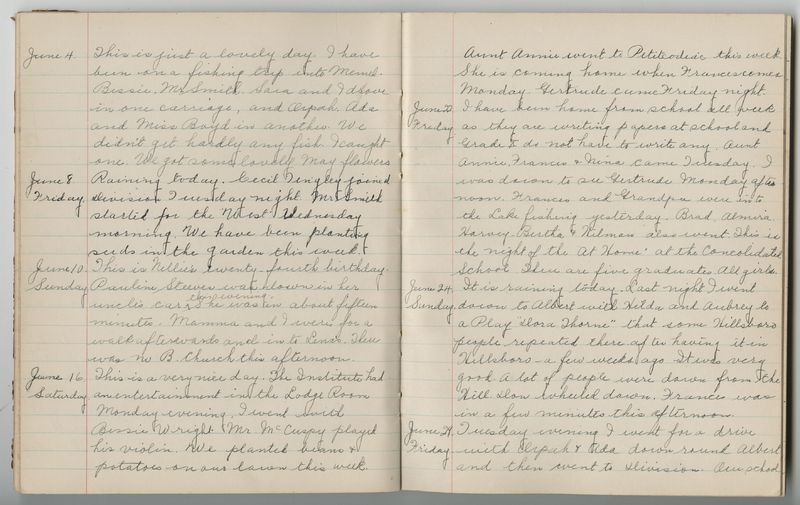 June 4. This is just a lovely day. I have
been on a fishing trip into Memel.
Bessie, Mr. Smith, Sara and I drove
in one carriage, and Orpah, Ada
and Miss Boyd in another. We
didn't get hardly any fish. I caught
one. We got some lovely May flowers
June 8. Raining today. Cecil Tingley joined
Friday. Division Tuesday night. Mr. Smith
started for the West Wednesday
morning. We have been planting
seeds in the garden this week.
June 10. This is Nellie's twenty-fourth birthday.
Sunday Pauline Steeves was down in her
uncle's car this evening. She was in about fifteen
minutes. Mamma and I were for a
walk afterwards and in to Lena's. There
was no B. Church this afternoon.
June 16. This is a very nice day. The Institute had
Saturday an entertainment in the Lodge Room
Monday evening. I went with
Bessie Wright. Mr. McCuspy played
his violin. We planted beans &
potatoes on our lawn this week.
Aunt Annie went to Petitcodiac this week
She is coming home when Frances comes
Monday. Gertrude came Friday night.
June 22. I have been home from school all week
Friday as they are writing papers at school and
Grade do not have to write any. Aunt
Annie, Frances & Nina came Tuesday. I
was down to see Gertrude Monday after
noon. Frances and Grandpa were into
the Lake fishing yesterday. Brad, Almira
Harvey, Bertha & Wilman also went. This is
the night of the "At Home" at the Consolidated
School. There are five graduates. All girls.
June 24. It is raining today. Last night I went
Sunday down to Albert with Hilda and Aubrey to
a Play "Dora Thorne" that some Hillsboro
people repeated there after having it in
Hillsboro a few weeks ago. It was very
good. A lot of people were down from the
Hill. Don wheeled down. Frances was
in a few minutes this afternoon.
June 29. Tuesday evening I went for a drive
Friday with Orpah & Ada down round Albert
and then went to Division. Our school